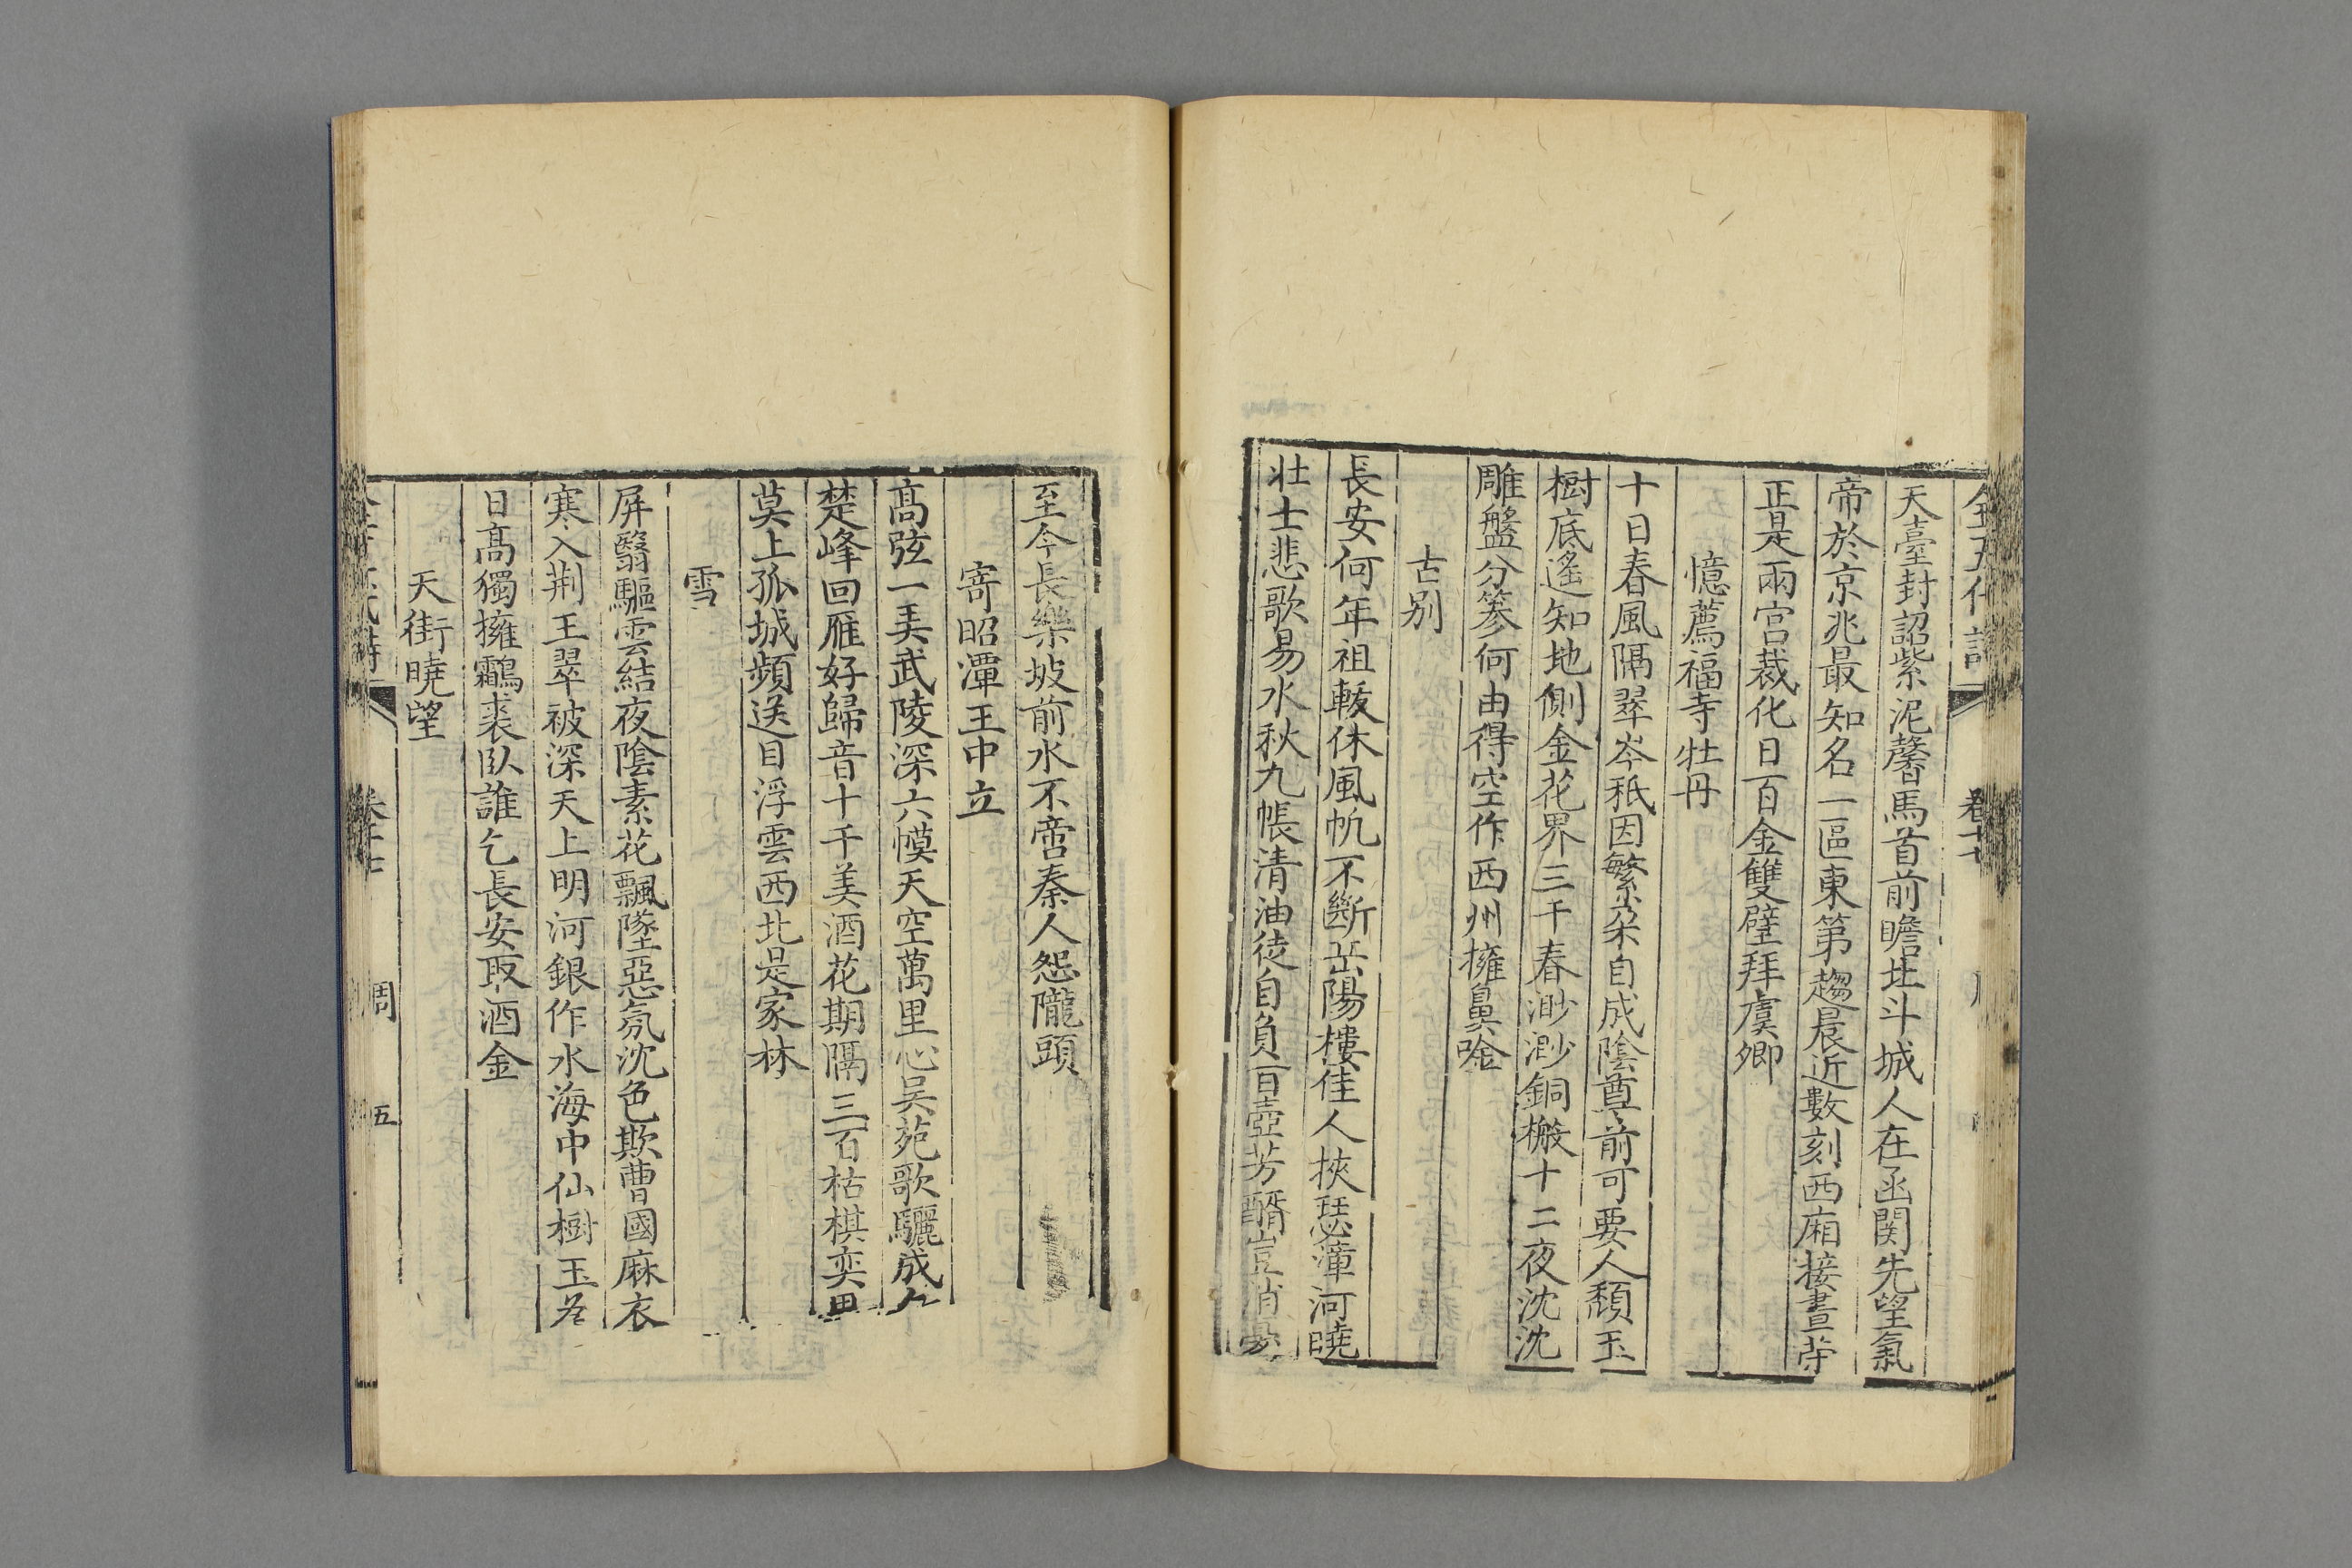 全五代詩 卷十七
天臺封詔紫泥馨馬首前瞻北斗城人在函関先望氣
帝於京兆最知名一區東第趨晨近數刻西廂接晝
正是兩宮裁化日百金雙璧拜虞卿
憶薦福寺牡丹
十日春風隔翠岑秖因繁朵自成陰尊前可要人頹玉
樹底遙知地側金花界三千春渺渺銅槃十二夜沈沈
雕盤分篸何由得空作西州擁鼻唫
古别
長安何年祖軷休風帆不斷岳陽樓佳人挾瑟漳河曉
壯士悲歌易水秋九帳清油徒自負百壺芳醑豈消憂
至今長樂坡前水不啻秦人怨隴頭
寄昭潭王中立
高弦一弄武陵深六幙天空萬里心吳苑歌驪成久
楚峰回雁好歸音十千美酒花期隔三百枯棋奕思
莫上孤城頻送目浮雲西北是家林
雪
屏翳驅雲結夜陰素花飄墜惡氛沈色欺曹國麻衣
寒入荆王翠被深天上明河銀作水海中仙樹玉為
日高獨擁鸘裘臥誰乞長安取酒金
天街曉望
卷十七 周 五